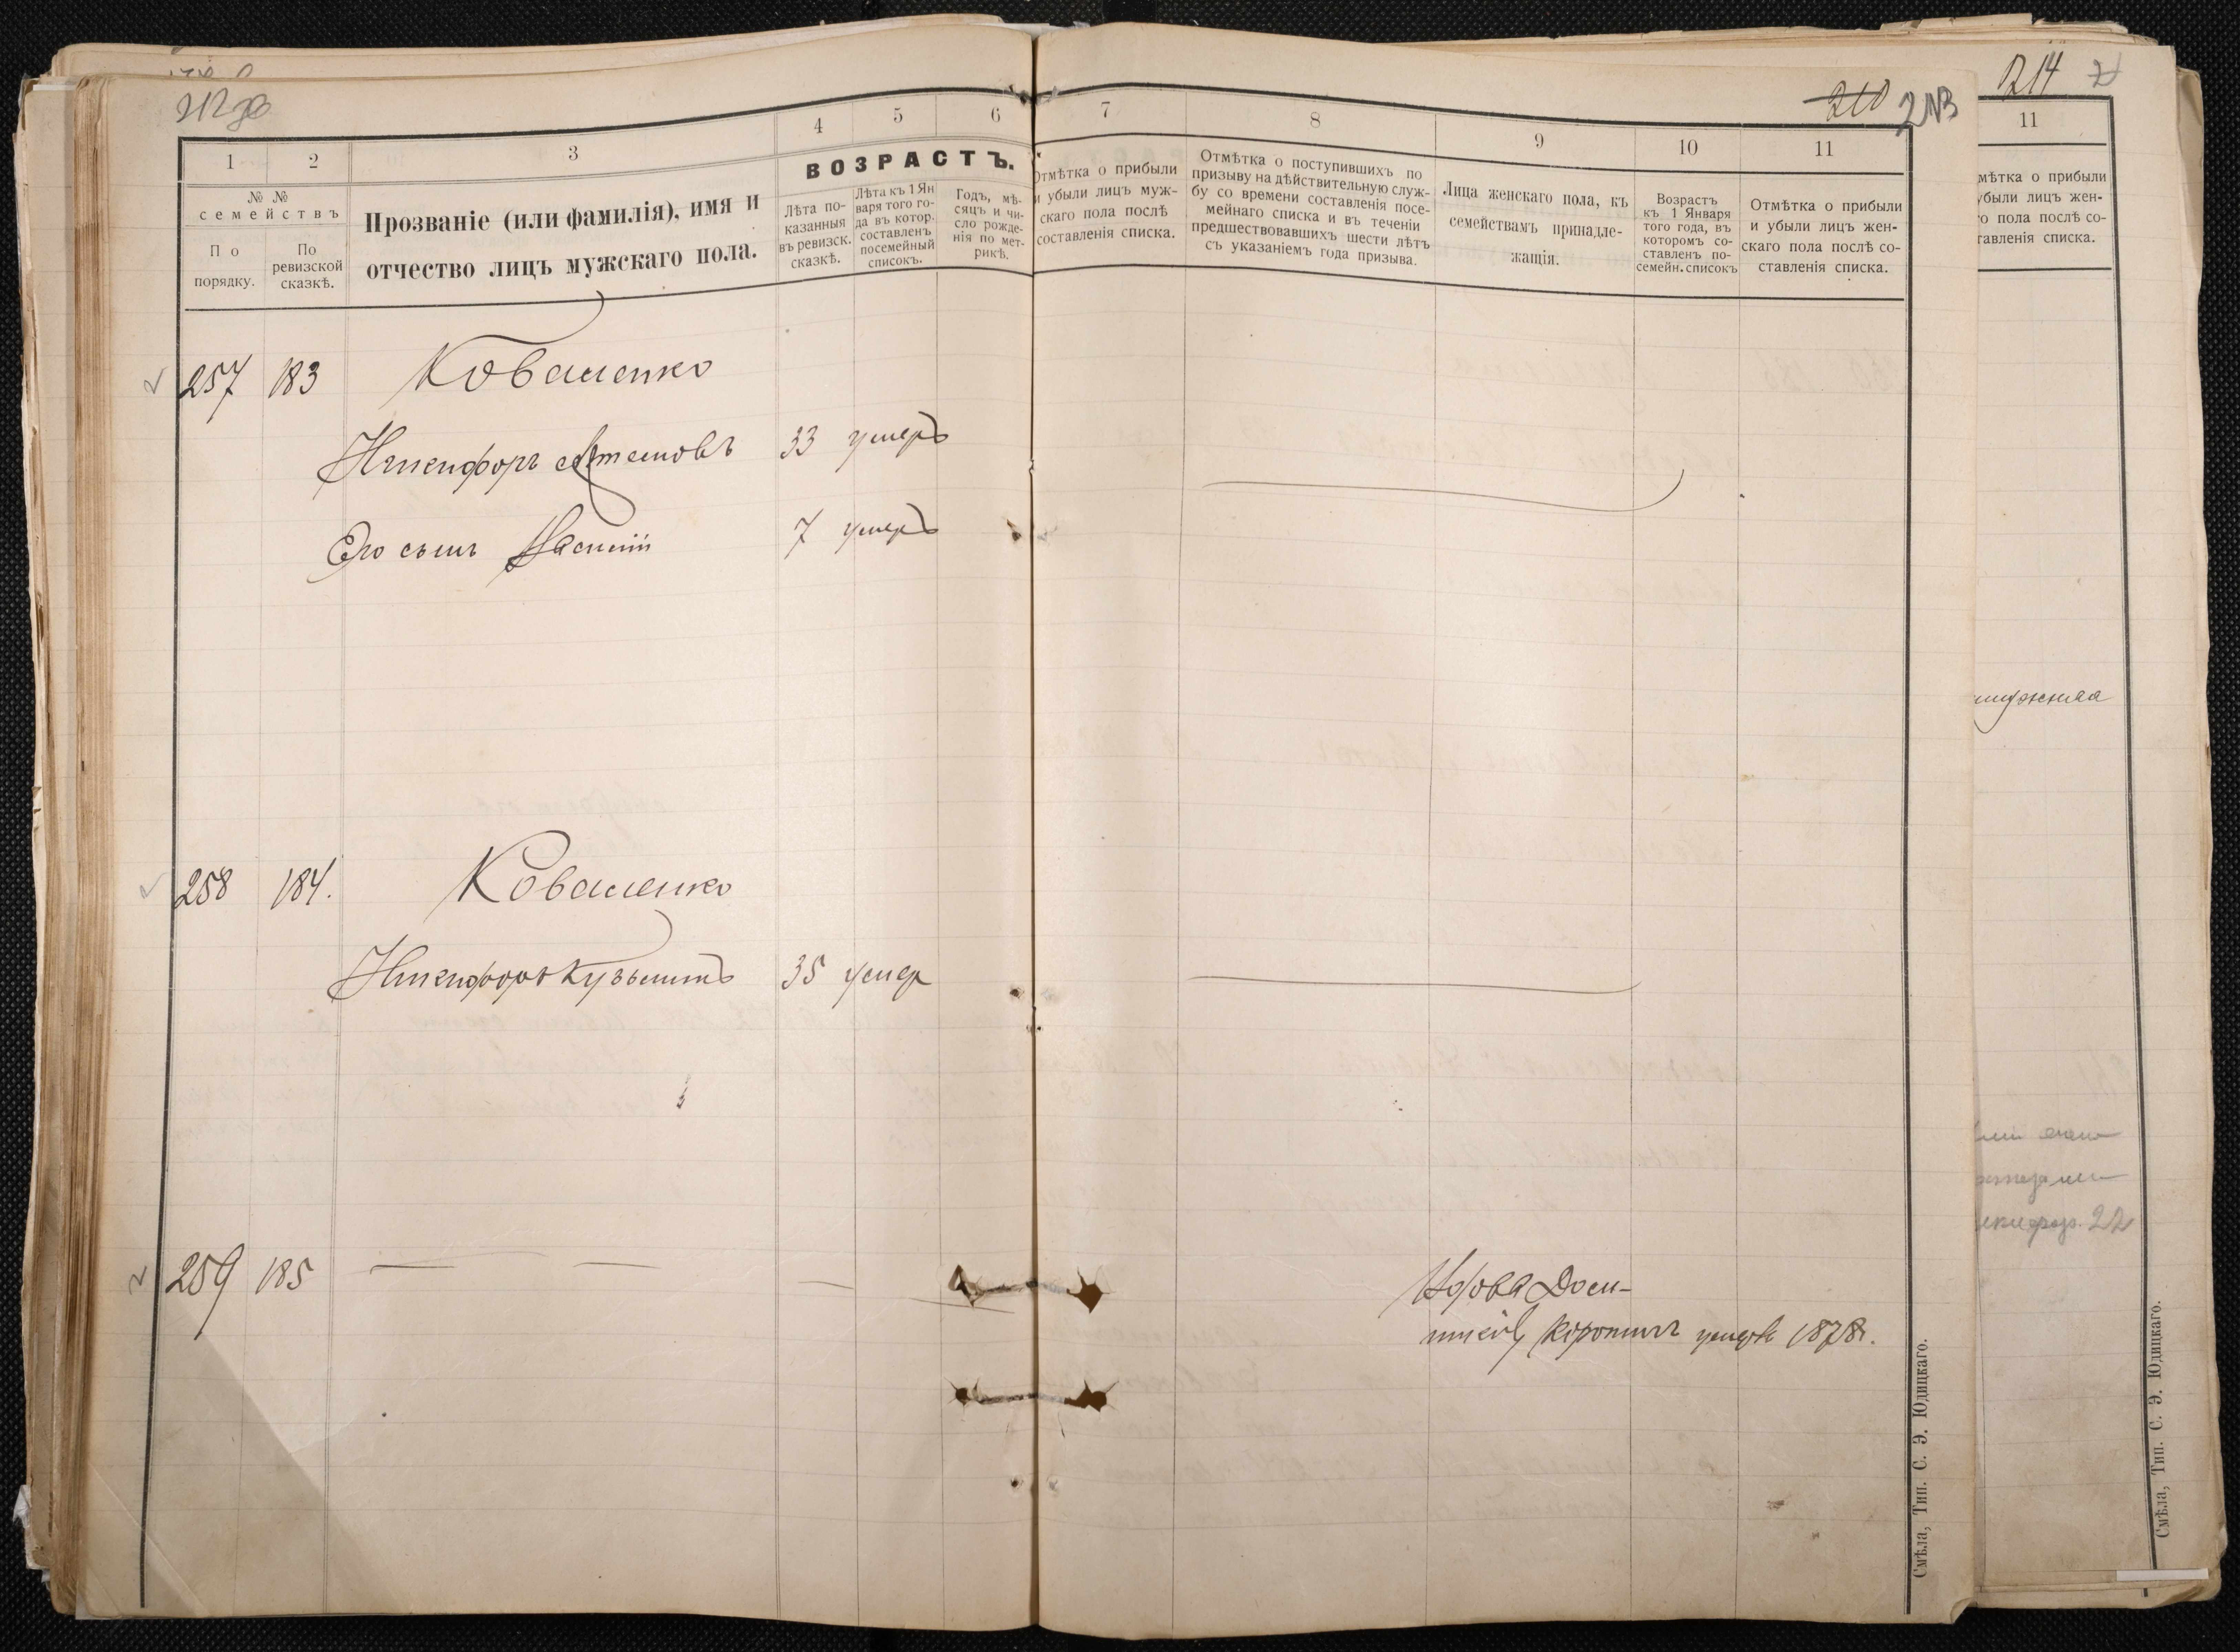 212 зв
210 213
214
1
2
3
4
5
6
7
8
9
10
11
11
№ №
семействъ
По
порядку.
По
ревизской
сказкѣ.
Прозваніе (или фамилія), имя и
отчество лицъ мужскаго пола.
ВОЗРАСТЪ.
Лѣта по-
казанныя
въ ревизск.
сказкѣ.
Лѣта къ 1 Ян
варя того го-
да въ котор.
составленъ
посемейный
списокъ.
Годъ, мѣ-
сяцъ и чи-
сло рожде-
нія по мет-
рикѣ.
Отмѣтка о прибыли
и убыли лицъ муж-
скаго пола послѣ
составленія списка.
Отмѣтка о поступившихъ по
призыву на дѣйствительную служ-
бу со времени составленія посе-
мейнаго списка и въ теченіи
предшествовавшихъ шести лѣтъ
съ указаніемъ года призыва.
Лица женскаго пола, къ
семействамъ принадле-
жащія.
Возрастъ
къ 1 Января
того года, въ
которомъ со-
ставленъ по-
семейн. списокъ
Отмѣтка о прибыли
и убыли лицъ жен-
скаго пола послѣ со-
ставленія списка.
мѣтка о прибыли
убыли лицъ жен-
о пола послѣ со-
тавленія списка.
257 183 Коваленко
Никифоръ Артемовъ 33 умеръ
Его сынъ 7 умеръ
258 184. Коваленко
Никифоръ Кузьминъ 35 умер
259 185
Вдова Доми-
умерла 1878г.
22
Смѣла, Тип. С. Э. Юдицкаго.
Смѣла, Тип. С. Э. Юдицкаго.